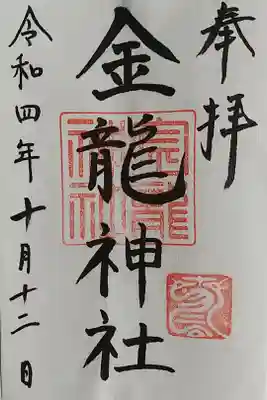 奉拝
金龍神社
令和四年十月十二日